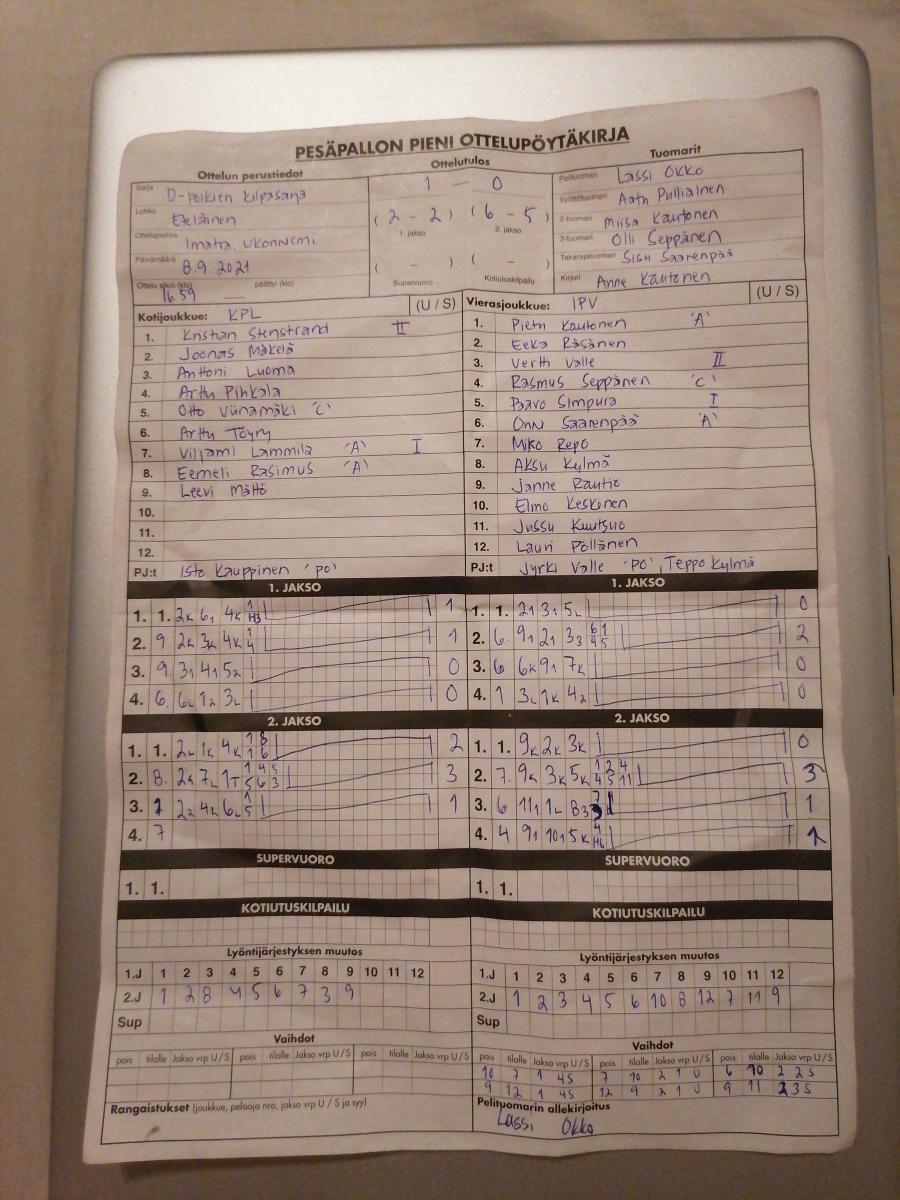 PESÄPALLON PIENI OTTELUPÖYTÄKIRJA
Ottelun perustiedot
Ottelutulos
Tuomarit
Sarja D-poikien kilpasarja
Lohko Eteläinen
Ottelupaikka Imatra, Ukonniemi
Päivämäärä 8.9.2021
Ottelu alkoi (klo) 16.59 päättyi (klo)
1 — 0
( 2 - 2 ) ( 6 - 5 )
1. jakso 2. jakso
( - ) ( - )
Supervuoro Kotiutuskilpailu
Pelituomari Lassi Okko
Syöttötuomari Aatu Pulliainen
2-tuomari Miisa Kautonen
3-tuomari Olli Seppänen
Takarajatuomari Sisu Saarenpää
Kirjuri Anne Kautonen
Kotijoukkue: KPL (U / S)
1. Kristian Stenstrand II
2. Joonas Mäkelä
3. Anttoni Luoma
4. Arttu Pihkala
5. Otto Viinamäki 'C'
6. Arttu Töyry
7. Viljami Lammila 'A' I
8. Eemeli Rasimus 'A'
9. Leevi Mättö
10.
11.
12.
PJ:t Isto Kauppinen 'PO'
Vierasjoukkue: IPV (U / S)
1. Pietu Kautonen 'A'
2. Eeka Räsänen
3. Vertti Valle II
4. Rasmus Seppänen 'C'
5. Paavo Simpura I
6. Onni Saarenpää 'A'
7. Miko Repo
8. Aksu Kylmä
9. Janne Rautio
10. Elmo Keskinen
11. Jussu Kuutsuo
12. Lauri Pöllänen
PJ:t Jyrki Valle 'PO', Teppo Kylmä
1. JAKSO
1. 1. 2K 6₁ 4K 1 H3 1
2. 9 2K 3K 4K 1 4 1
3. 9 3₁ 4₁ 5₂ 0
4. 6 6L 1₂ 3L 0
1. JAKSO
1. 1. 2₁ 3₁ 5L 0
2. 6 9₁ 2₁ 3₃ 6 1 4 5 2
3. 6 6K 9₁ 7K 0
4. 1 3L 1K 4₂ 0
2. JAKSO
1. 1. 2L 1K 4K 1 8 1 6 2
2. 8. 2₂ 7L 1T 1 4 5 5 6 3 3
3. 2₂ 4L 6L 1 5 1
4. 7
2. JAKSO
1. 1. 9K 2K 3K 0
2. 7. 9₂ 3K 5K 1 2 4 4 5 11 3
3. 6 11₁ 1L 8₃ 1
4. 4 9₁ 10₁ 5K 4 H6 1
SUPERVUORO
1. 1.
SUPERVUORO
1. 1.
KOTIUTUSKILPAILU
KOTIUTUSKILPAILU
Lyöntijärjestyksen muutos
1.J 1 2 3 4 5 6 7 8 9 10 11 12
2.J 1 2 8 4 5 6 7 3 9
Sup
Lyöntijärjestyksen muutos
1.J 1 2 3 4 5 6 7 8 9 10 11 12
2.J 1 2 3 4 5 6 10 8 12 7 11 9
Sup
Vaihdot
pois tilalle Jakso vrp U / S pois tilalle Jakso vrp U / S pois tilalle Jakso vrp U / S
Vaihdot
pois tilalle Jakso vrp U / S pois tilalle Jakso vrp U / S pois tilalle Jakso vrp U / S
10 7 1 4S 7 10 2 1 U 6 10 2 2 S
9 12 1 4S 12 9 2 1 U 9 11 2 3 S
Rangaistukset (joukkue, pelaaja nro, jakso vrp U / S ja syy)
Pelituomarin allekirjoitus
Lassi Okko